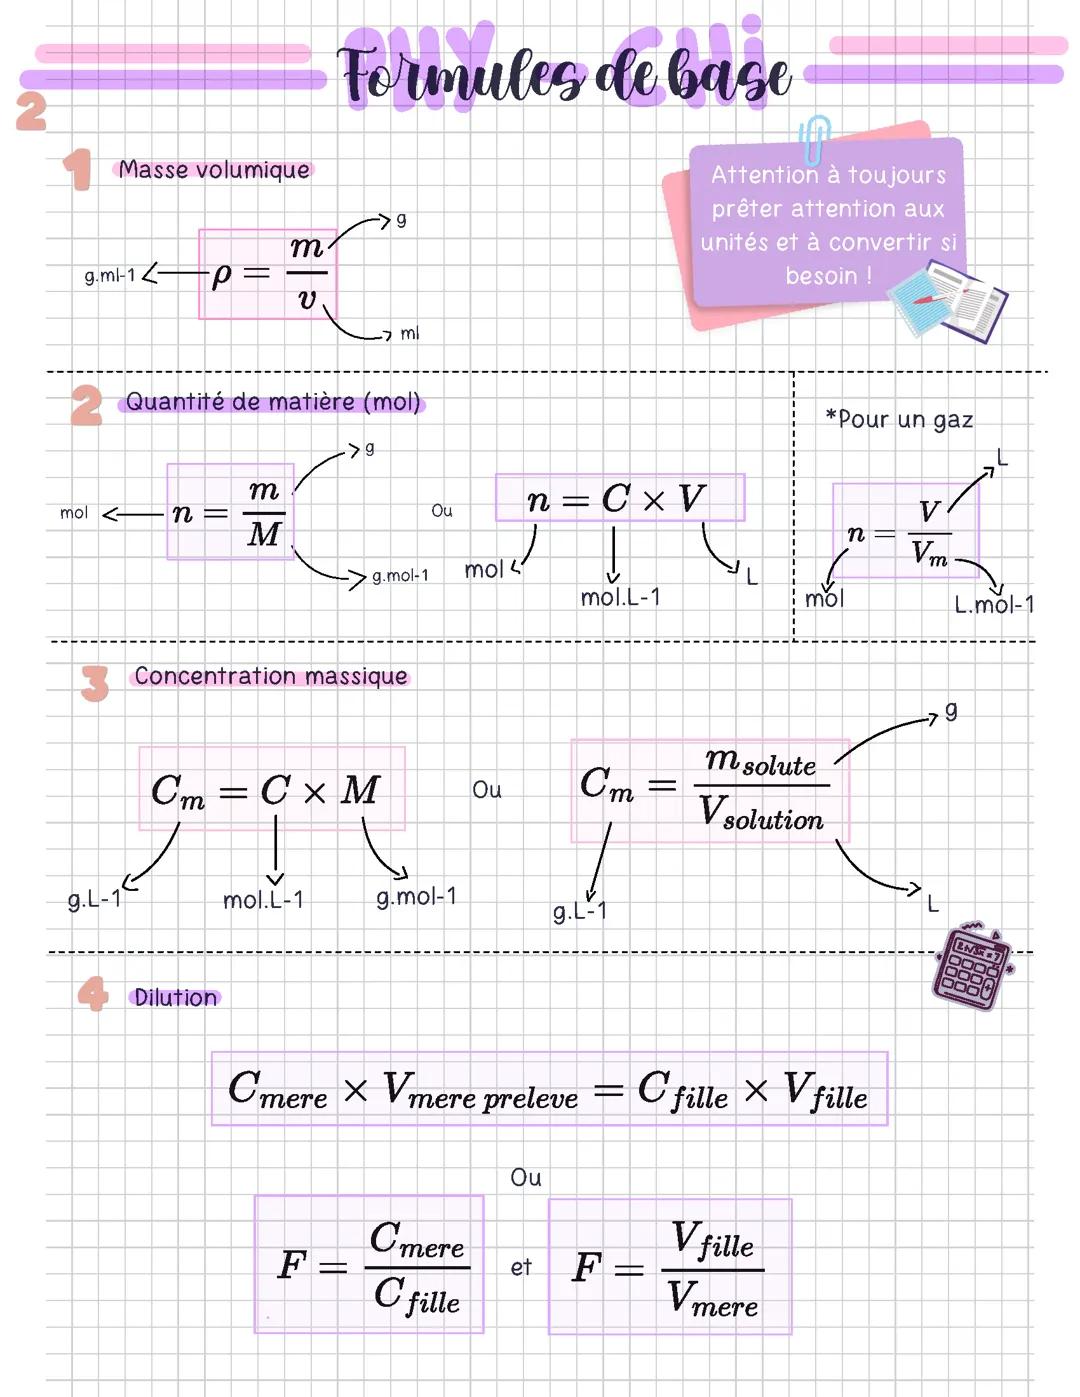 PHY - CHi
Formules de base
2
1 Masse volumique
Attention à toujours
prêter attention aux
unités et à convertir si
besoin !
g.ml-1 ρ = m/v
g
ml
2 Quantité de matière (mol)
mol n = m/M
g
g.mol-1
Ou
n = C × V
mol
mol.L-1
L
*Pour un gaz
n = V/Vm
L
mol
L.mol-1
3 Concentration massique
Cm = C × M
g.L-1
mol.L-1
g.mol-1
Ou
Cm = msolute/Vsolution
g
g.L-1
L
4 Dilution
Cmere × Vmere preleve = Cfille × Vfille
Ou
F = Cmere/Cfille et F = Vfille/Vmere